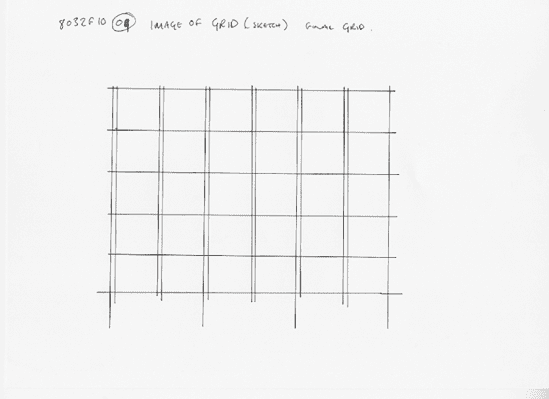 8032F10 09 IMAGE OF GRID (SKETCH) FINAL GRID.